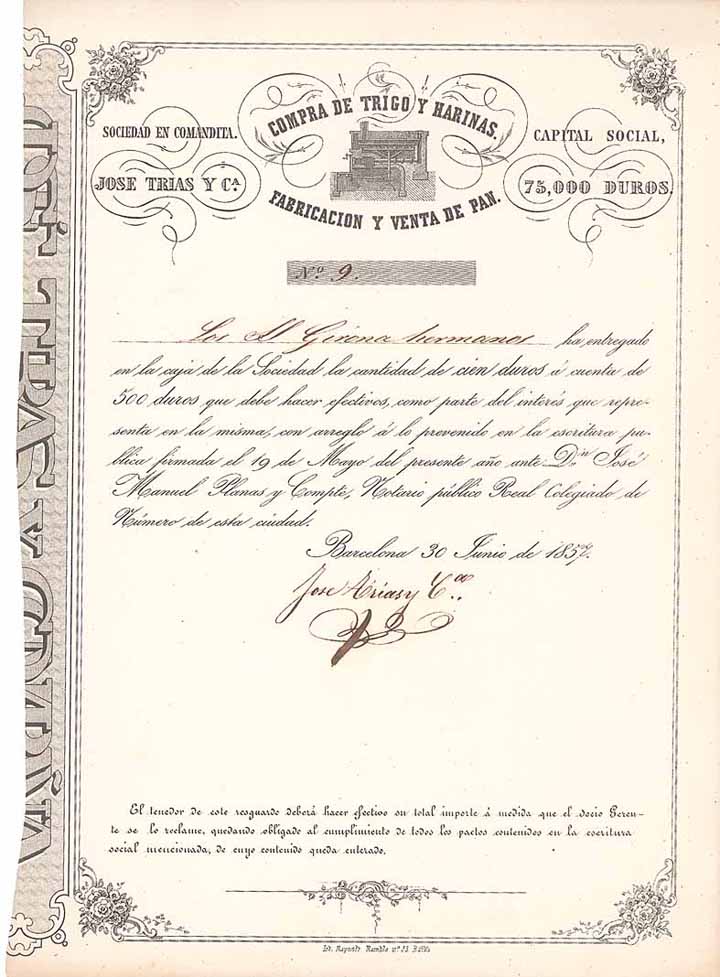 COMPRA DE TRIGO Y HARINAS.
SOCIEDAD EN COMANDITA.
CAPITAL SOCIAL,
JOSE TRIAS Y Cª
75,000 DUROS.
FABRICACION Y VENTA DE PAN.
Nº 9.
Los Girona hermanos ha entregado
en la caja de la Sociedad la cantidad de cien duros á cuenta de
500 duros que debe hacer efectivos, como parte del interés que repre-
senta en la misma, con arreglo á lo prevenido en la escritura pu-
blica firmada el 19 de Mayo del presente año ante Dn José
Manuel Planas y Compte, Notario público Real Colegiado de
Número de esta ciudad.
Barcelona 30 Junio de 1857.
Jose Trias y Cia.
El tenedor de este resguardo deberá hacer efectivo su total importe á medida que el socio Geren-
te se lo reclame, quedando obligado al cumplimiento de todos los pactos contenidos en la escritura
social mencionada, de cuyo contenido queda enterado.
Lit. Rambla nº